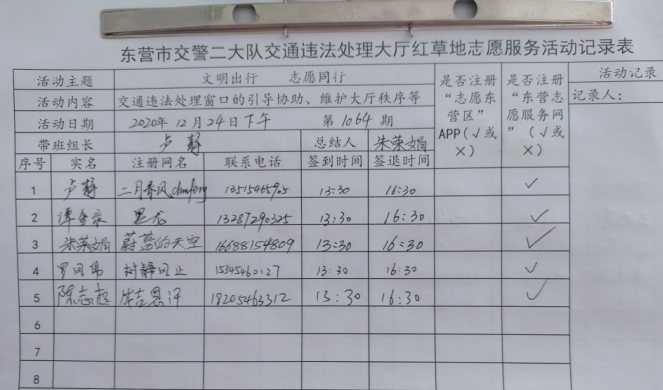 东营市交警二大队交通违法处理大厅红草地志愿服务活动记录表
活动主题 文明出行 志愿同行 是否注册“志愿东营区”APP(√或×) 是否注册“东营志愿服务网”(√或×) 活动记录
活动内容 交通违法处理窗口的引导协助、维护大厅秩序等 记录人:
活动日期 2020年12月24日下午 第1064期
带班组长 卢静 总结人 朱荣娟
序号 实名 注册网名 联系电话 签到时间 签退时间
1 卢静 二月春风 13515465905 13:30 16:30 √
2 黑龙 13287290325 13:30 16:30 √
3 朱荣娟 蔚蓝的天空 16688154809 13:30 16:30 √
4 树静风止 15345460127 13:30 16:30 √
5 陈志超 18205463312 13:30 16:30 √
6
7
8